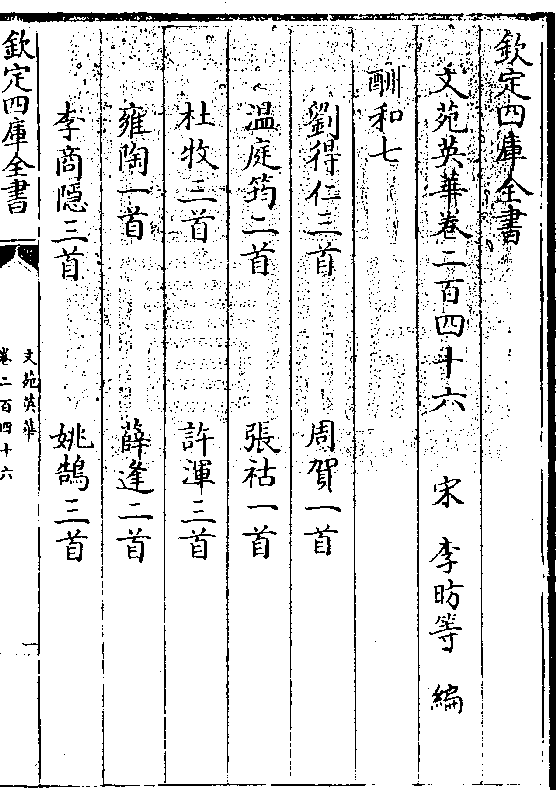 欽定四庫全書
文苑英華卷二百四十六 宋 李昉等 編
酬和七
劉得仁三首 周賀一首
温庭筠二首 張祜一首
杜牧三首 許渾三首
雍陶一首 薛逢二首
李商隱三首 姚鵠三首
欽定四庫全書
文苑英華
卷二百四十六
一